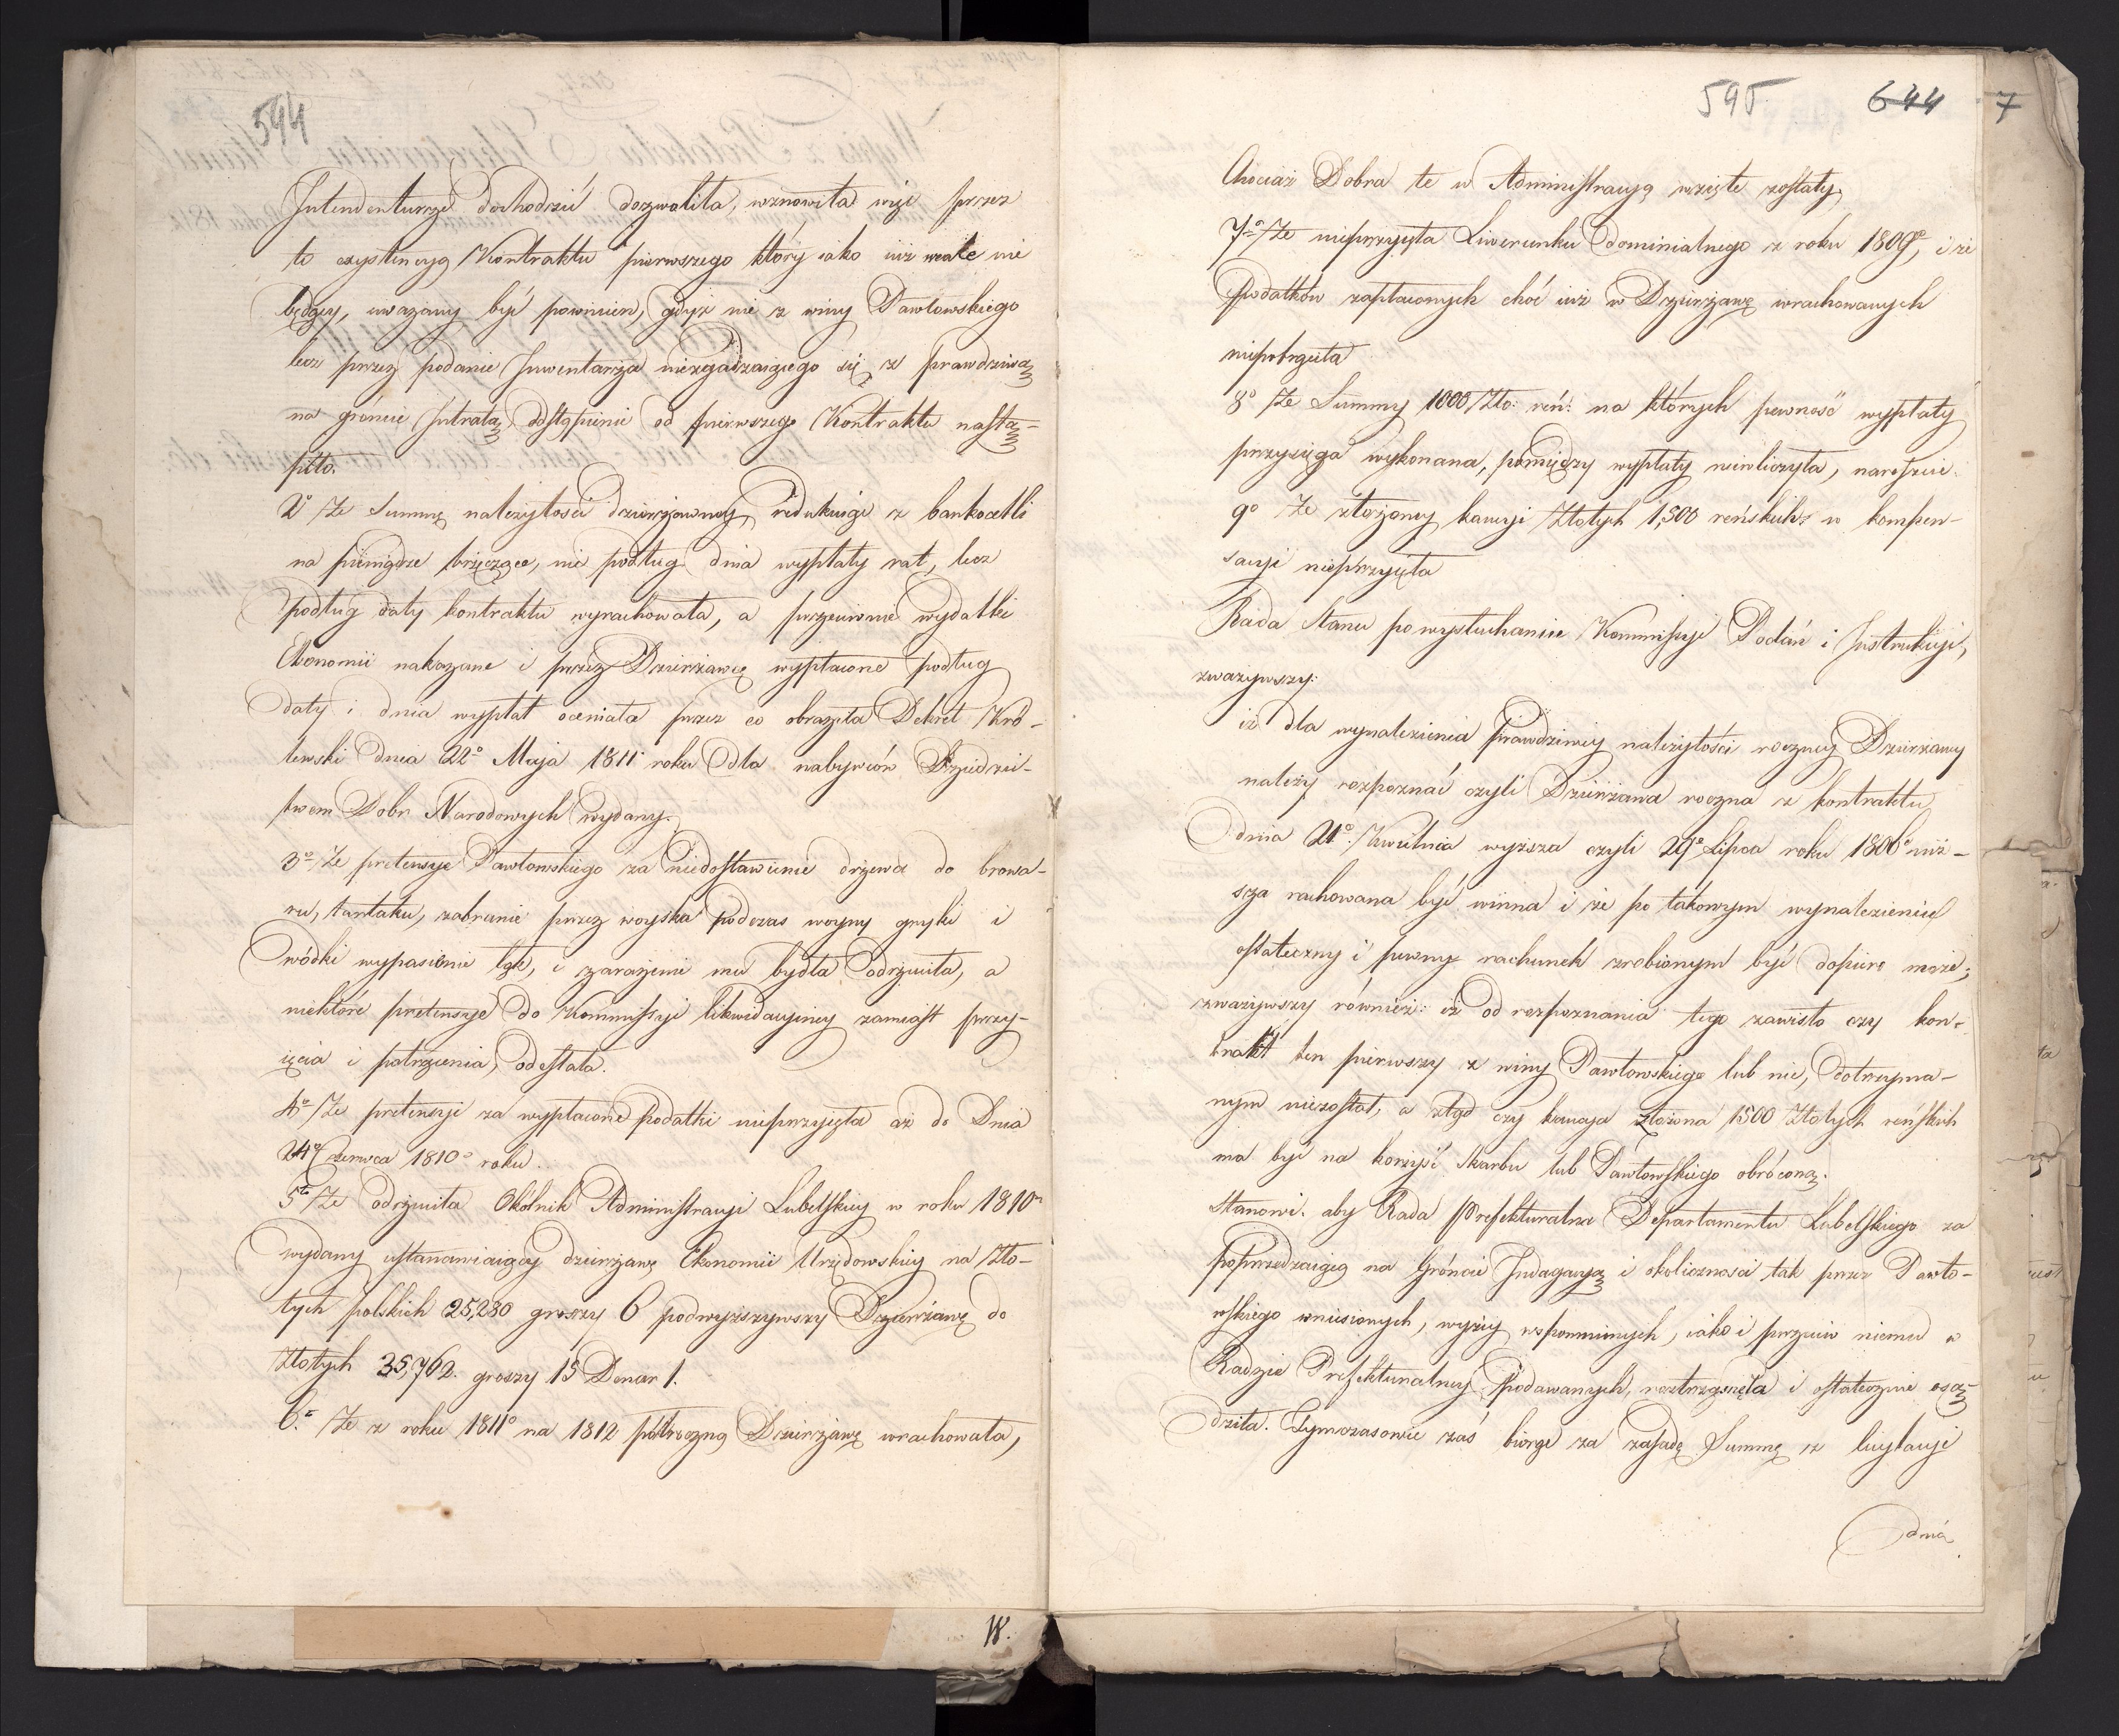 594
Intendenturze dochodzić dozwoliła, wznowiła więc przez
to exystencyą Kontraktu pierwszego który iako iuż wcale nie
będący, uważany być powinien, gdyż nie z winy Pawłowskiego
lecz przez podanie Inwentarza niezgadzaiącego się z prawdziwą
na gróncie Intratą, odstąpienie od pierwszego Kontraktu nastą-
piło.
2º Że Summę należytości dzierżawney redukuiąc z bankocetli
na pieniądze brzęczące, nie podług dnia wypłaty rat, lecz
podług daty kontraktu wyrachowała, a przeciwnie wydatki
Ekonomii nakazane i przez Dzierżawcę wypłacone podług
daty i dnia wypłat oceniała przez co obraziła Dekret Kró-
lewski dnia 22º Maja 1811 roku dla nabywców Dziedzic-
twem Dobr Narodowych wydany.
3º Że pretensye Pawłowskiego za niedostawienie drzewa do browa-
ru, tartaku, zabranie przez woyska podczas woyny gryki i
wódki wypasienie łąk, i zarażenie mu bydła odrzuciła, a
niektóre pretensye do Kommissyi likwidacyiney zamiast przy-
ięcia i potrącenia, odesłała.
4º Że pretensyi za wypłacone podatki nieprzyięła aż do Dnia
24º Czerwca 1810º roku.
5º Że odrzuciła Okólnik Administracyi Lubelskiey w roku 1810º
wydany ustanawiaiący dzierżawę Ekonomii Urzędowskiey na Zło-
tych polskich 25,280 groszy 6 podwyższywszy Dzierżawę do
Złotych 35,762. groszy 15 Denar 1.
6º Że z roku 1811º na 1812 półroczną Dzierżawę wrachowała,
W.
595
644
7
Chociaż Dobra te w Administracyą wzięte zostały,
7º Że nieprzyięła Liwerunku dominialnego z roku 1809º, i że
Podatków zapłaconych choć iuż w Dzierżawę wrachowanych
niepotrąciła
8º Że Summy 1000 Zło: reń: na których pewność wypłaty
przysięga wykonana, pomiędzy wypłaty niewliczyła, nareszcie
9º Że złożoney kaucyi Złotych 1,500 reńskich w kompen-
sacyi nieprzyięła
Rada Stanu po wysłuchaniu Kommissyi Podań i Instrukcyi,
zważywszy:
iż dla wynalezienia prawdziwey należytości roczney Dzierżawy
należy rozpoznać czyli Dzierżawa roczna z kontraktu
dnia 21º Kwietnia wyższa czyli 29º Lipca roku 1806º niż-
sza rachowana być winna i że po takowym wynalezieniu
ostateczny i pewny rachunek zrobionym być dopiero może;
zważywszy również: iż od rozpoznania tego zawisło czy kon-
trakt ten pierwszy z winy Pawłowskiego lub nie, dotrzyma-
nym niezostał, a ztąd czy kaucya złożona 1500 Złotych reńskich
ma być na korzyść Skarbu lub Pawłowskiego obróconą.
Stanowi: aby Rada Prefekturalna Departamentu Lubelskiego za
poprzedzaiącą na Gróncie Indagacyą i okoliczności tak przez Pawło-
wskiego wniesionych, wyżey wspomnionych, iako i przeciw niemu w
Radzie Prefekturalney podawanych, roztrząsnęła i ostatecznie osą-
dziła. Tymczasowie zaś biorąc za zasadę Summę z licytacyi
dnia